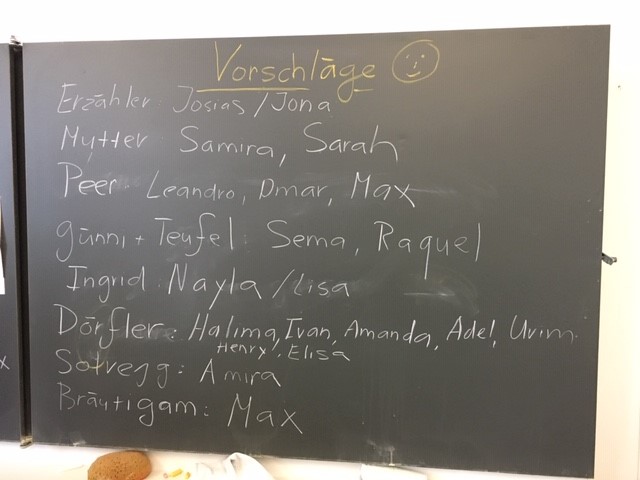 Vorschläge
Erzähler: Josias/Jona
Mutter: Samira, Sarah
Peer: Leandro, Omar, Max
günni + Teufel: Sema, Raquel
Ingrid: Nayla/Lisa
Dörfler: Halima, Ivan, Amanda, Adel, Uvim
Henry, Elisa
Solvegg: Amira
Bräutigam: Max